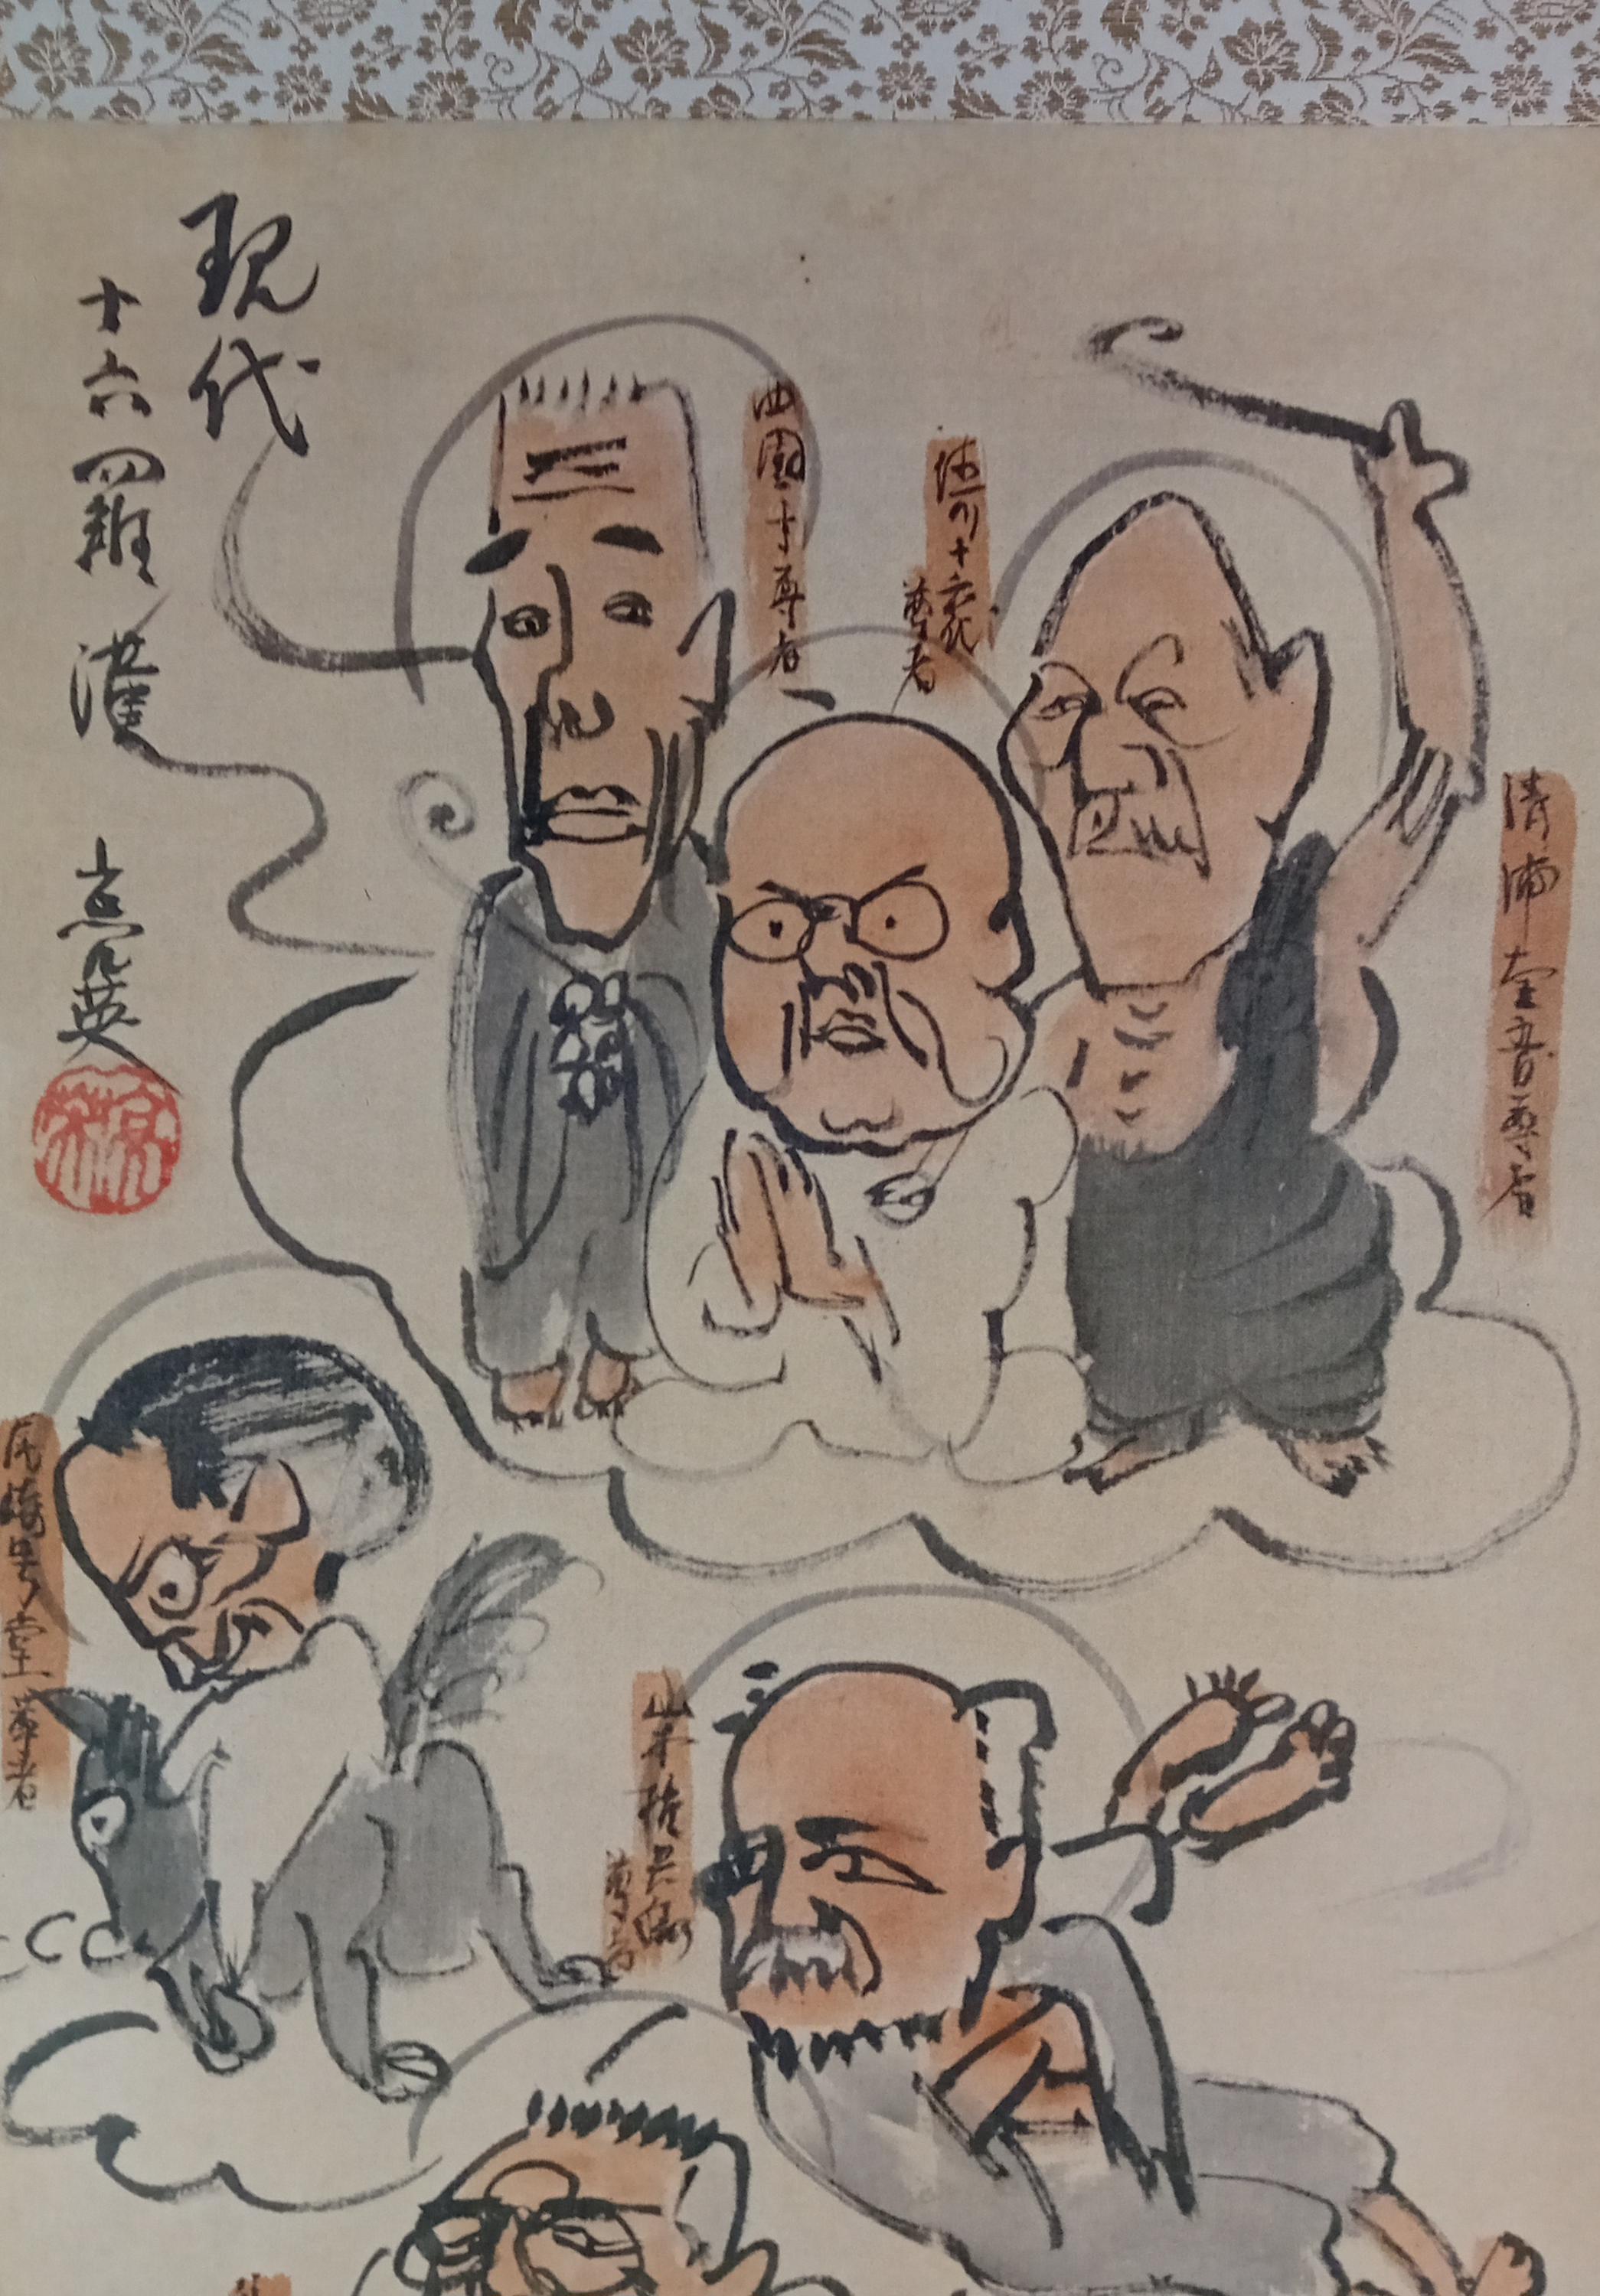 現代
十六羅漢
西園寺尊者
徳川十六代
尊者
清浦奎吾尊者
尾崎咢堂尊者
山本権兵衛
尊者